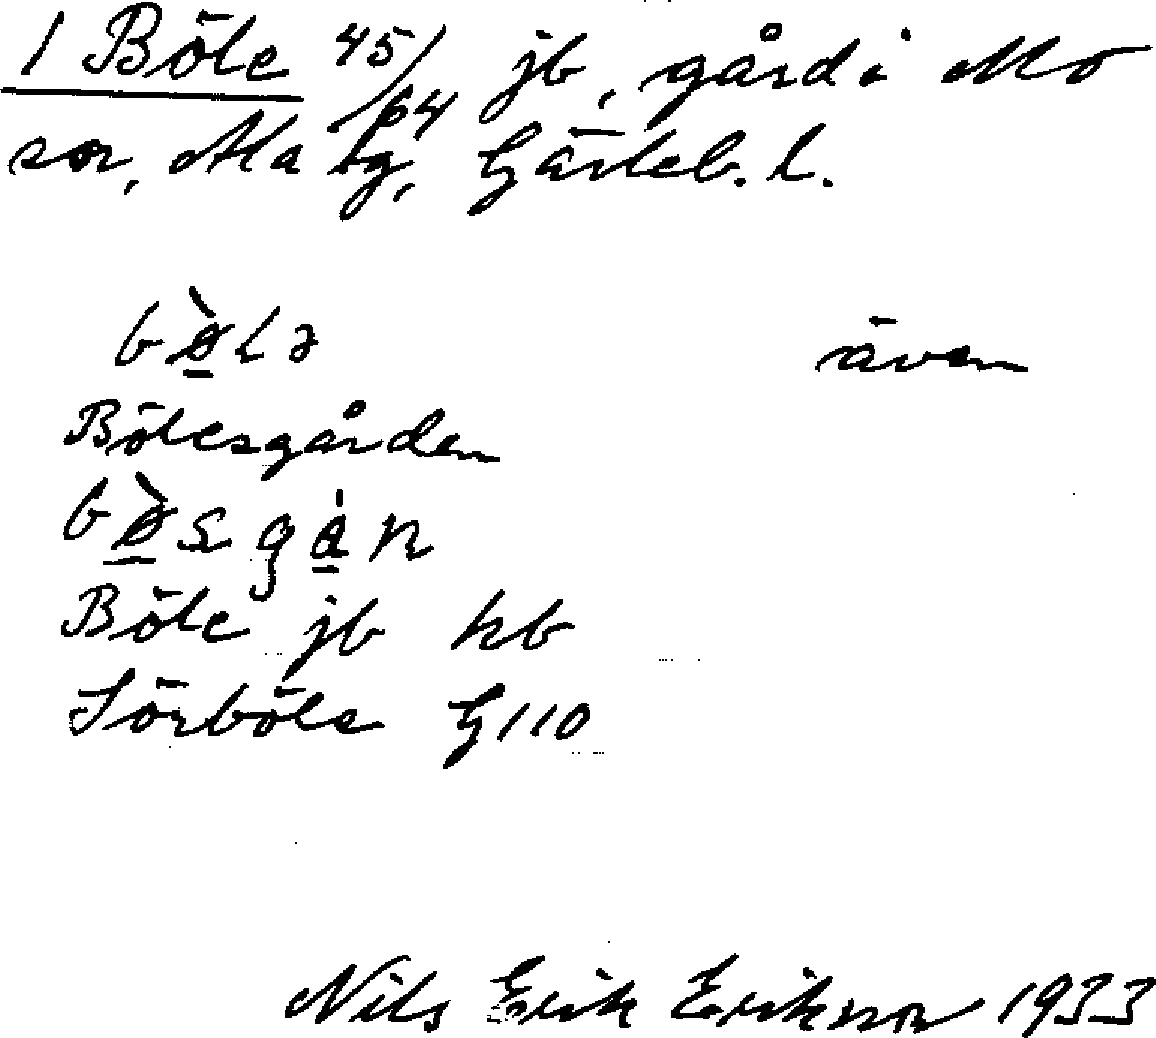 1 Böle 45/64 jb, gård i Mo
sn, Ala tg, Gävleb. l.
bø̀lə även
Bölesgården
bø̀sgán
Böle jb kb
Sörböle G110
Nils Erik Eriksson 1933